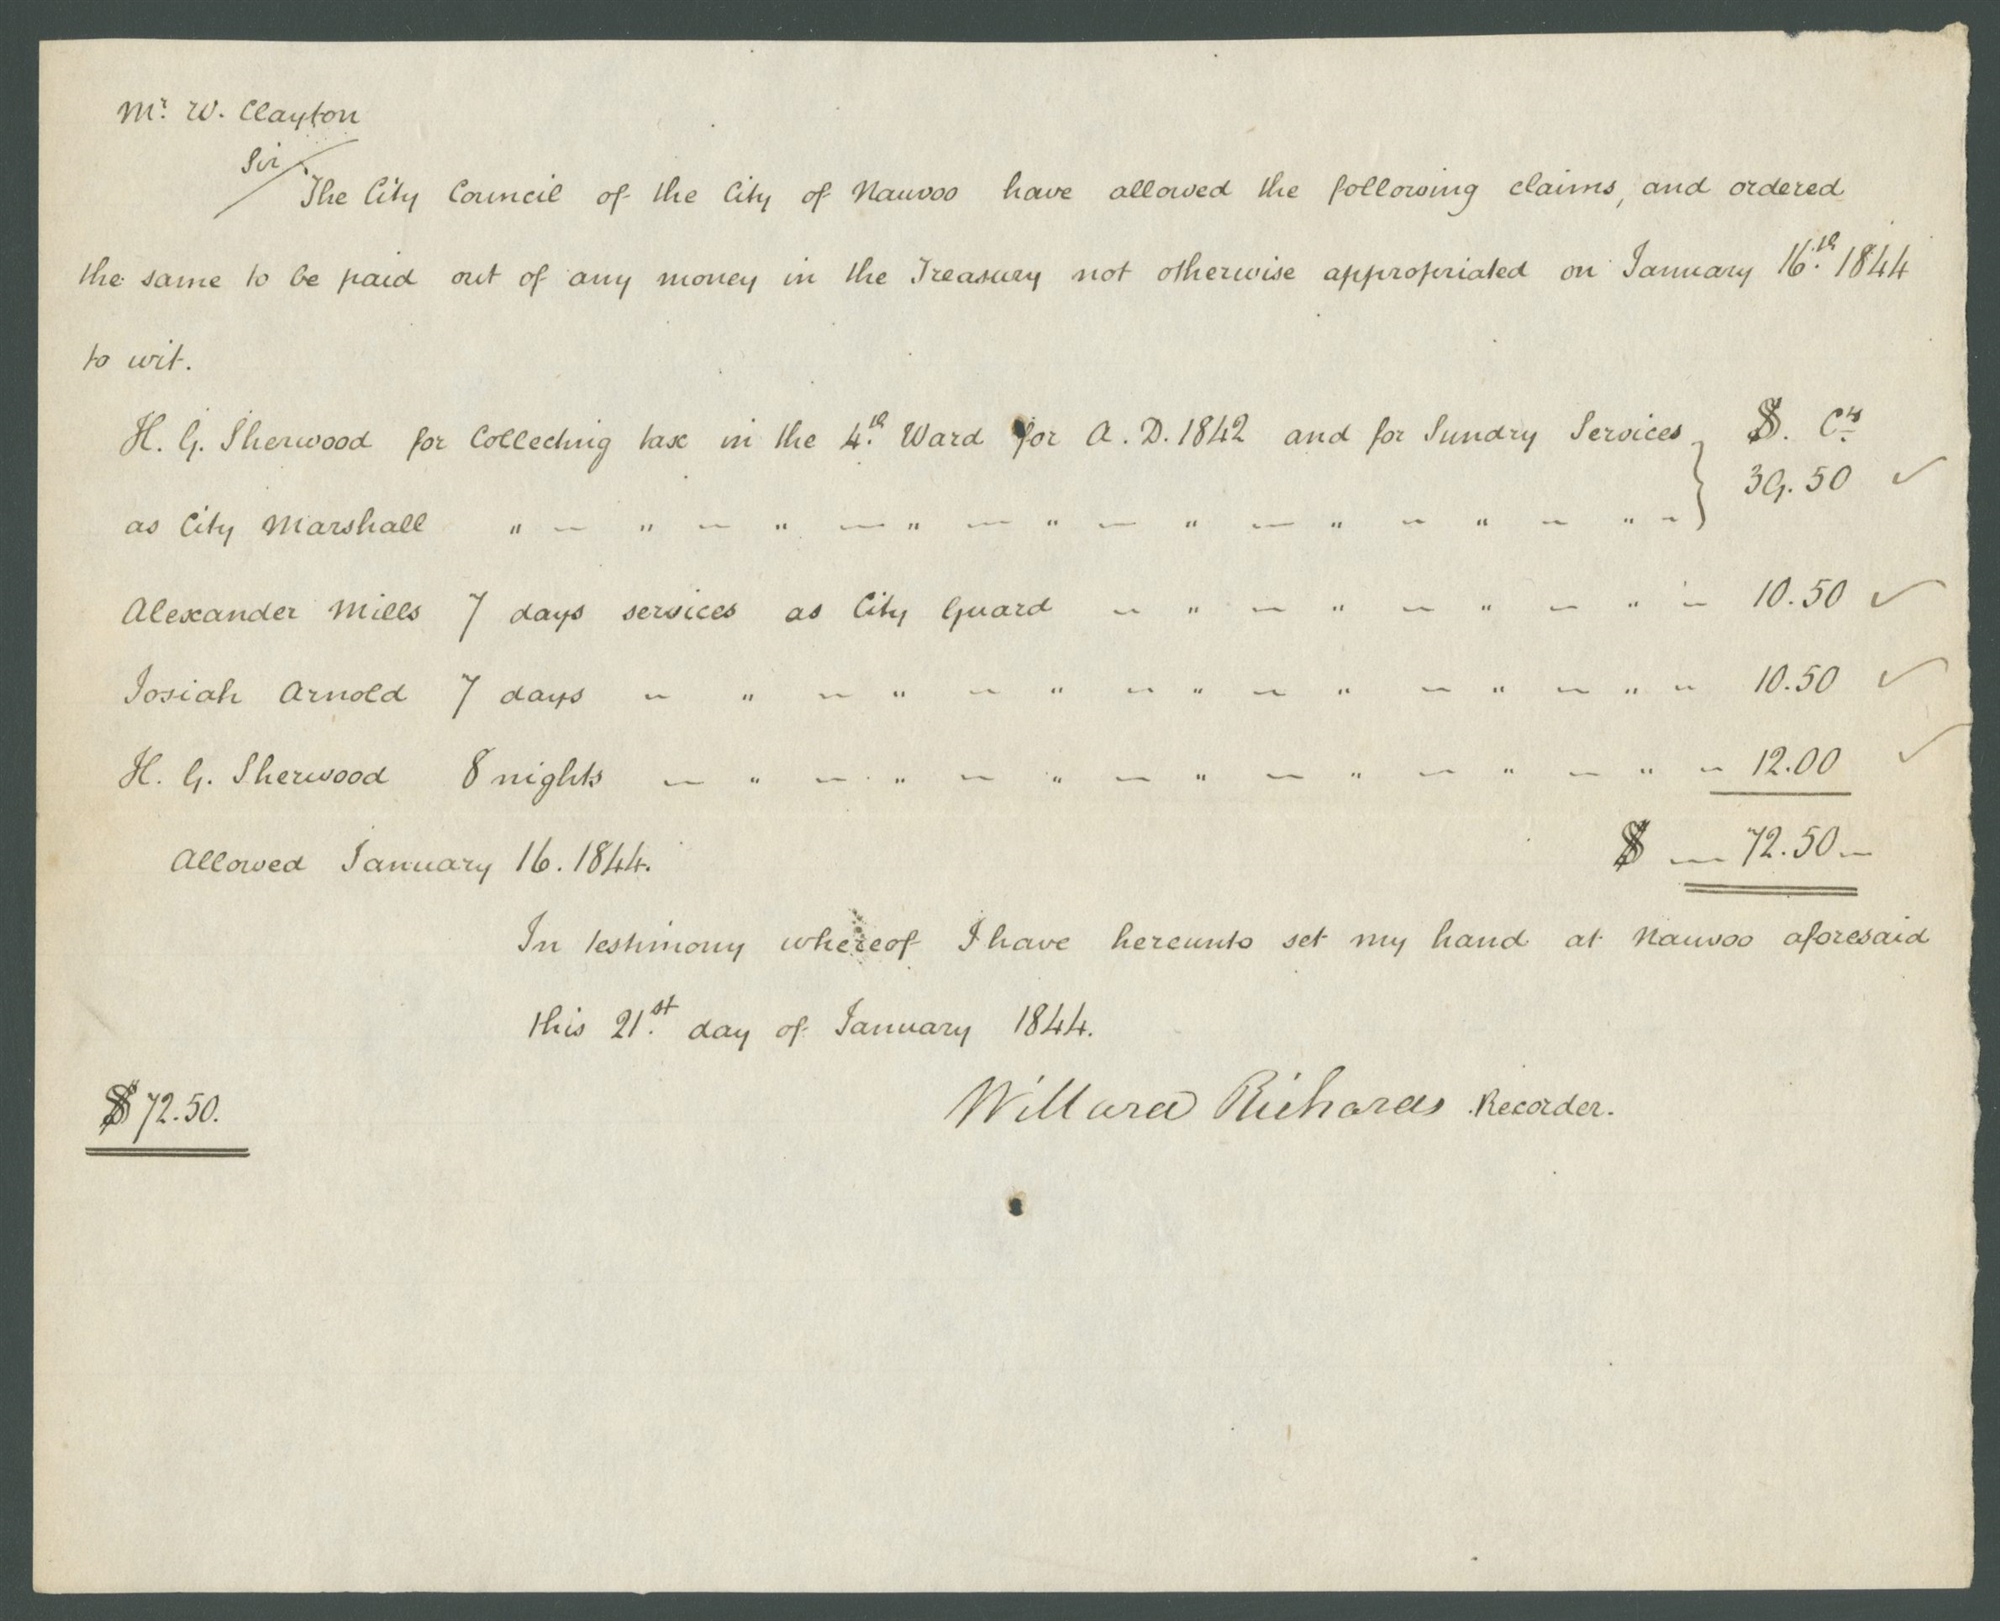 Mr. W. Clayton
Sir
The City Council of the City of Nauvoo have allowed the following claims, and ordered
the same to be paid out of any money in the Treasury not otherwise appropriated on January 16.th 1844
to wit.
H. G. Sherwood for Collecting tax in the 4.th Ward for A. D. 1842 and for Sundry Services $. Cts
as City Marshall " — " — " — " — " — " — " — " — " — } 39.50 ✓
Alexander Mills 7 days services as City Guard — " — " — " — " — 10.50 ✓
Josiah Arnold 7 days — " — " — " — " — " — " — " — 10.50 ✓
H. G. Sherwood 8 nights — " — " — " — " — " — " — " — 12.00 ✓
Allowed January 16. 1844. $ — 72.50 —
In testimony whereof I have hereunto set my hand at Nauvoo aforesaid
this 21.st day of January 1844.
$72.50. Willard Richards Recorder.